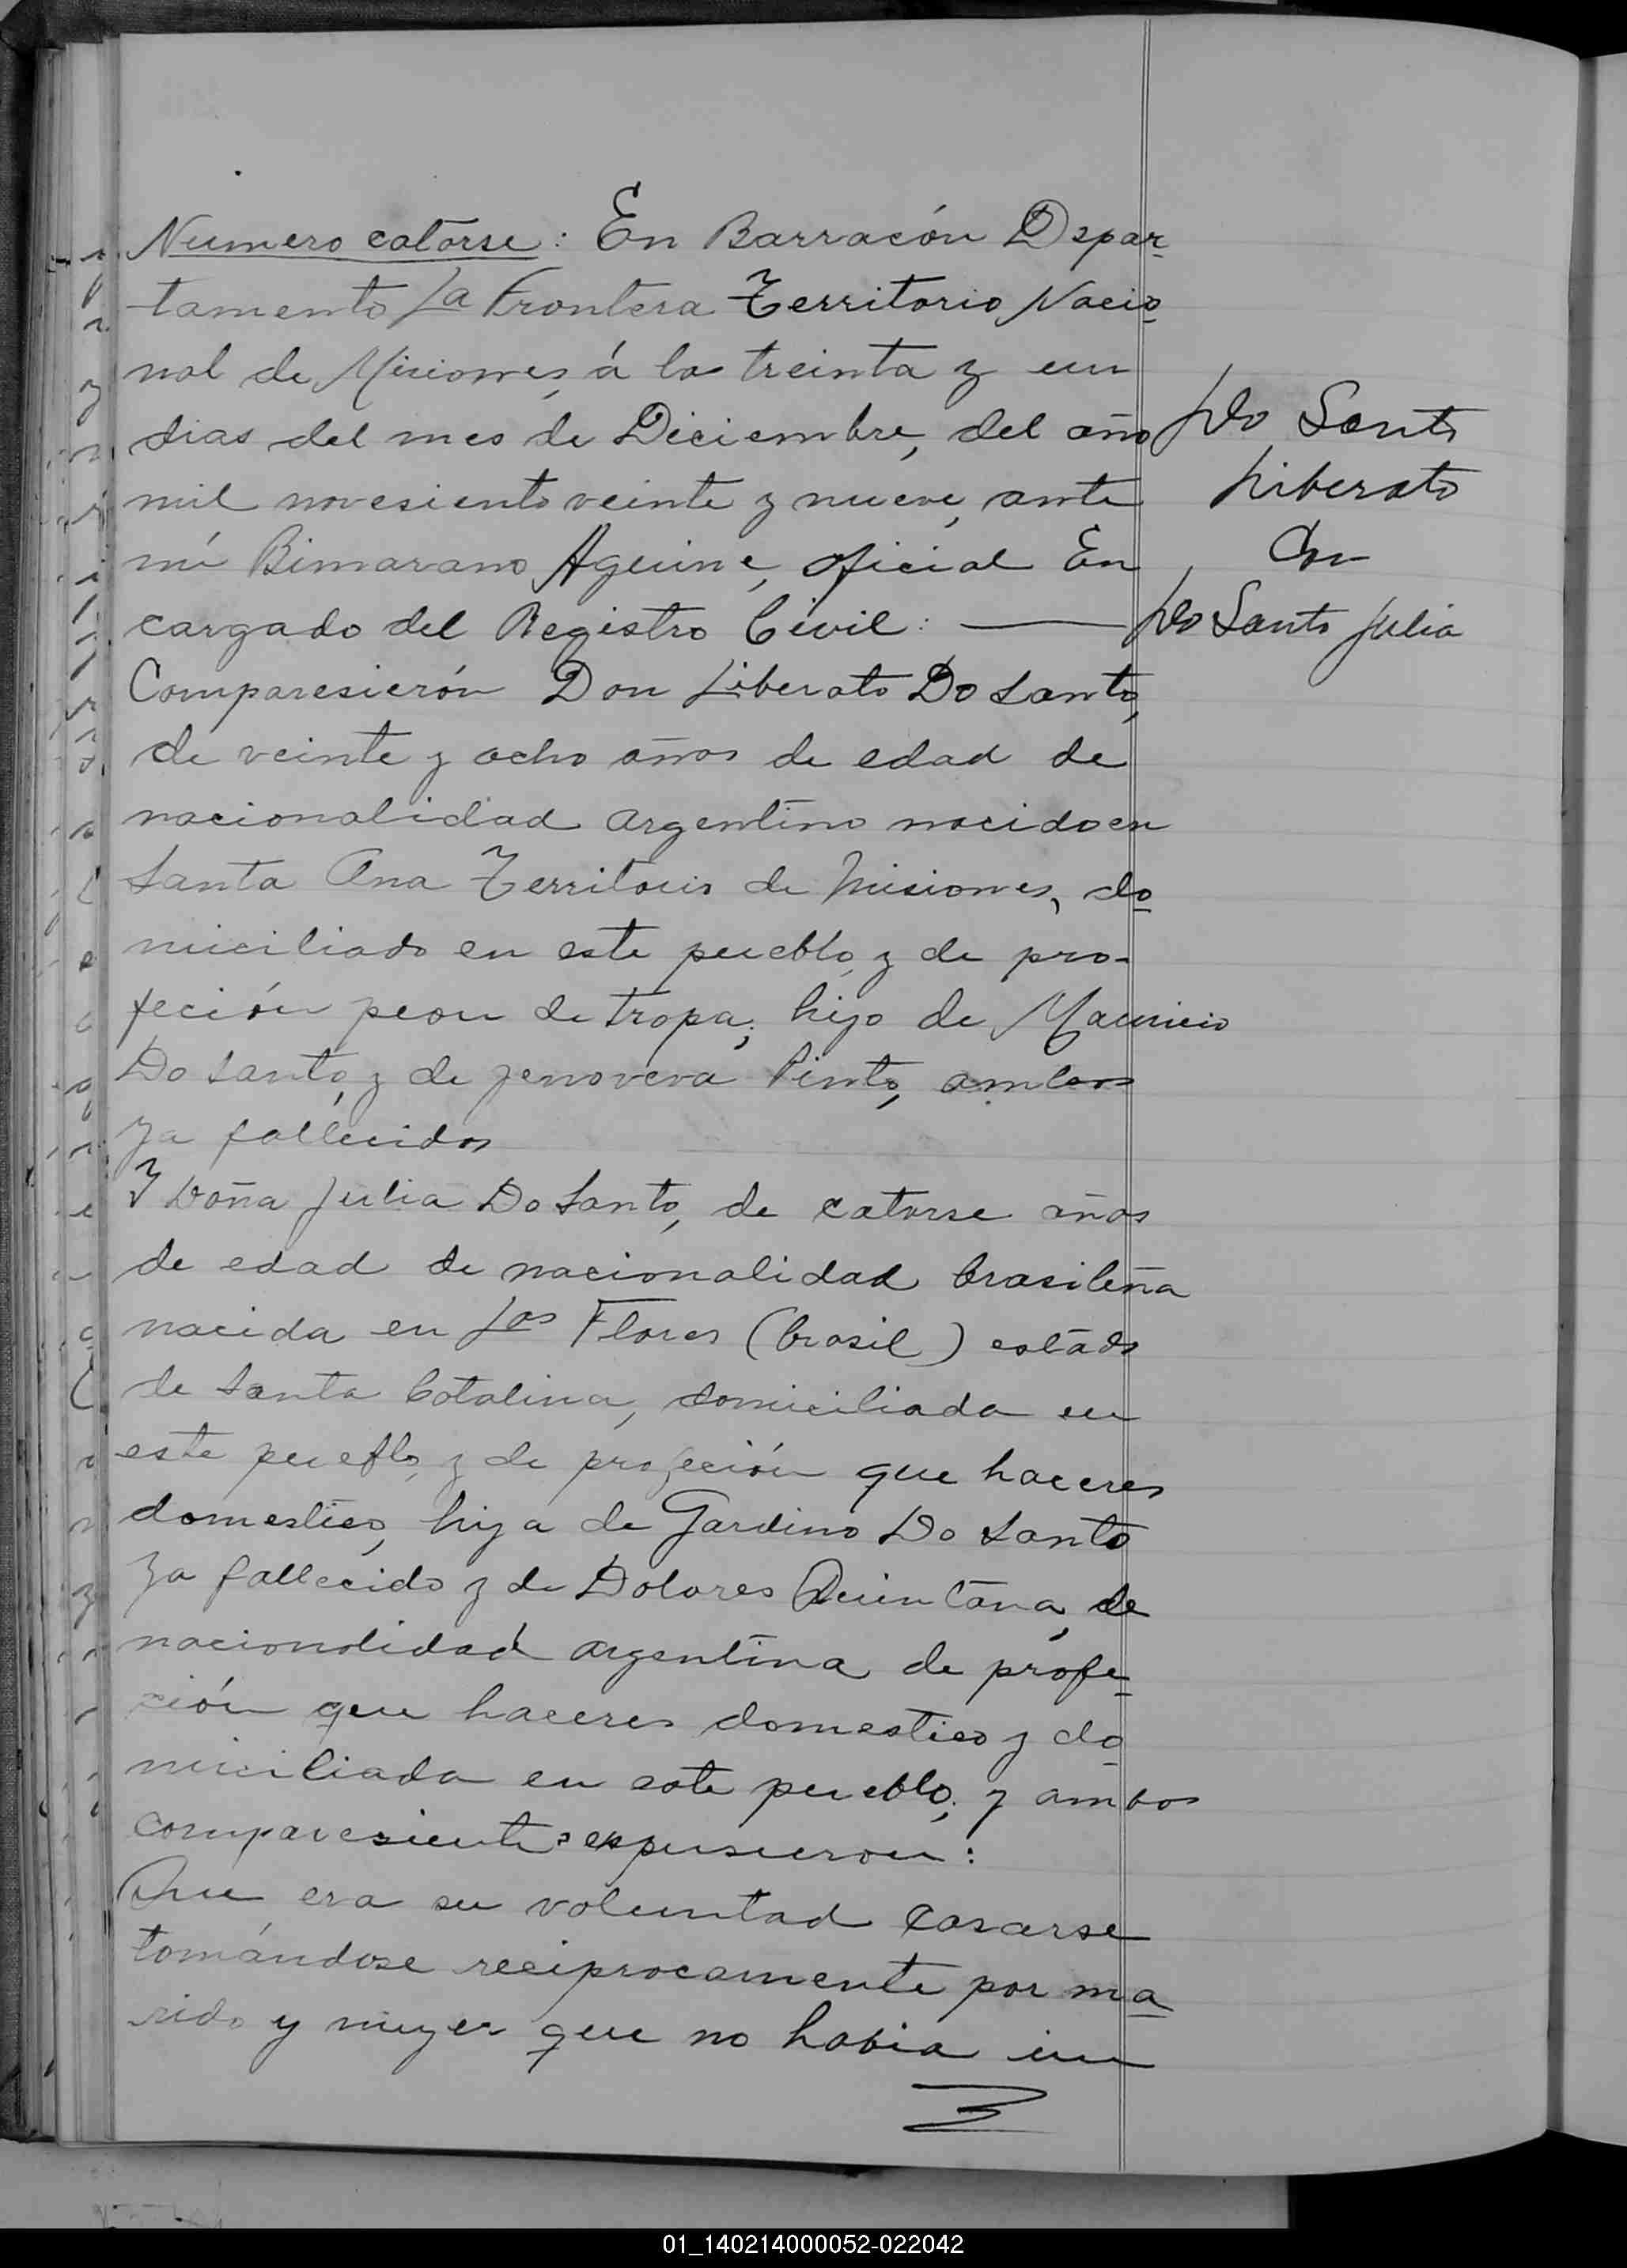 Numero catorse: En Barracón Depar-
tamento La Frontera Territorio Nacio-
nal de Misiones, á los treinta y un
dias del mes de Diciembre, del año
mil novesiento veinte y nueve, ante
mi Bimarano Aguirre, oficial En
cargado del Registro Civil:
Comparesierón Don Liberato Do Santo,
de veinte y ocho años de edad de
nacionalidad argentino nacido en
Santa Ana Territorio de Misiones, do-
miciliado en este pueblo, y de pro-
feción peon de tropa; hijo de Mauricio
Do Santo, y de Jenoveva Pinto, ambos
ya fallecidos
Y Doña Julia Do Santo, de catorse años
de edad de nacionalidad brasileña
nacida en Las Flores (brasil) estado
de Santa Catalina, domiciliada en
este pueblo, y de profeción que haceres
domestico, hija de Gardino Do Santo
ya fallecido y de Dolores Quintana, de
nacionalidad argentina de profe-
ción que haceres domestico y do-
miciliada en este pueblo; y ambos
comparesientes expusieron:
Que era su voluntad casarse
tomándose reciprocamente por ma-
rido y mujer que no habia im
Do Santo
Liberato
Con
Do Santo Julia
01_140214000052-022042